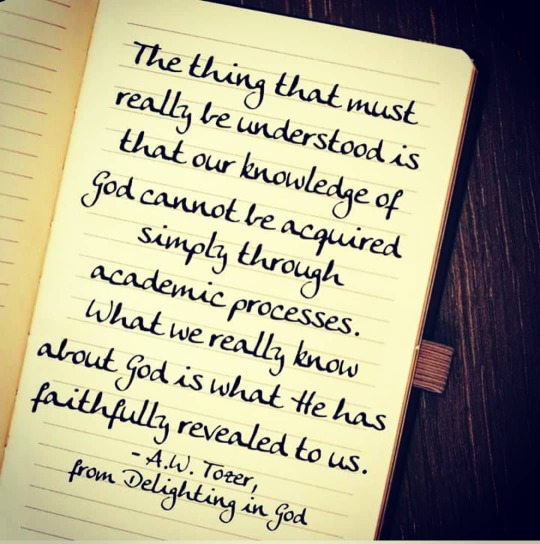 The thing that must
really be understood is
that our knowledge of
God cannot be acquired
simply through
academic processes.
What we really know
about God is what He has
faithfully revealed to us.
- A.W. Tozer,
from Delighting in God